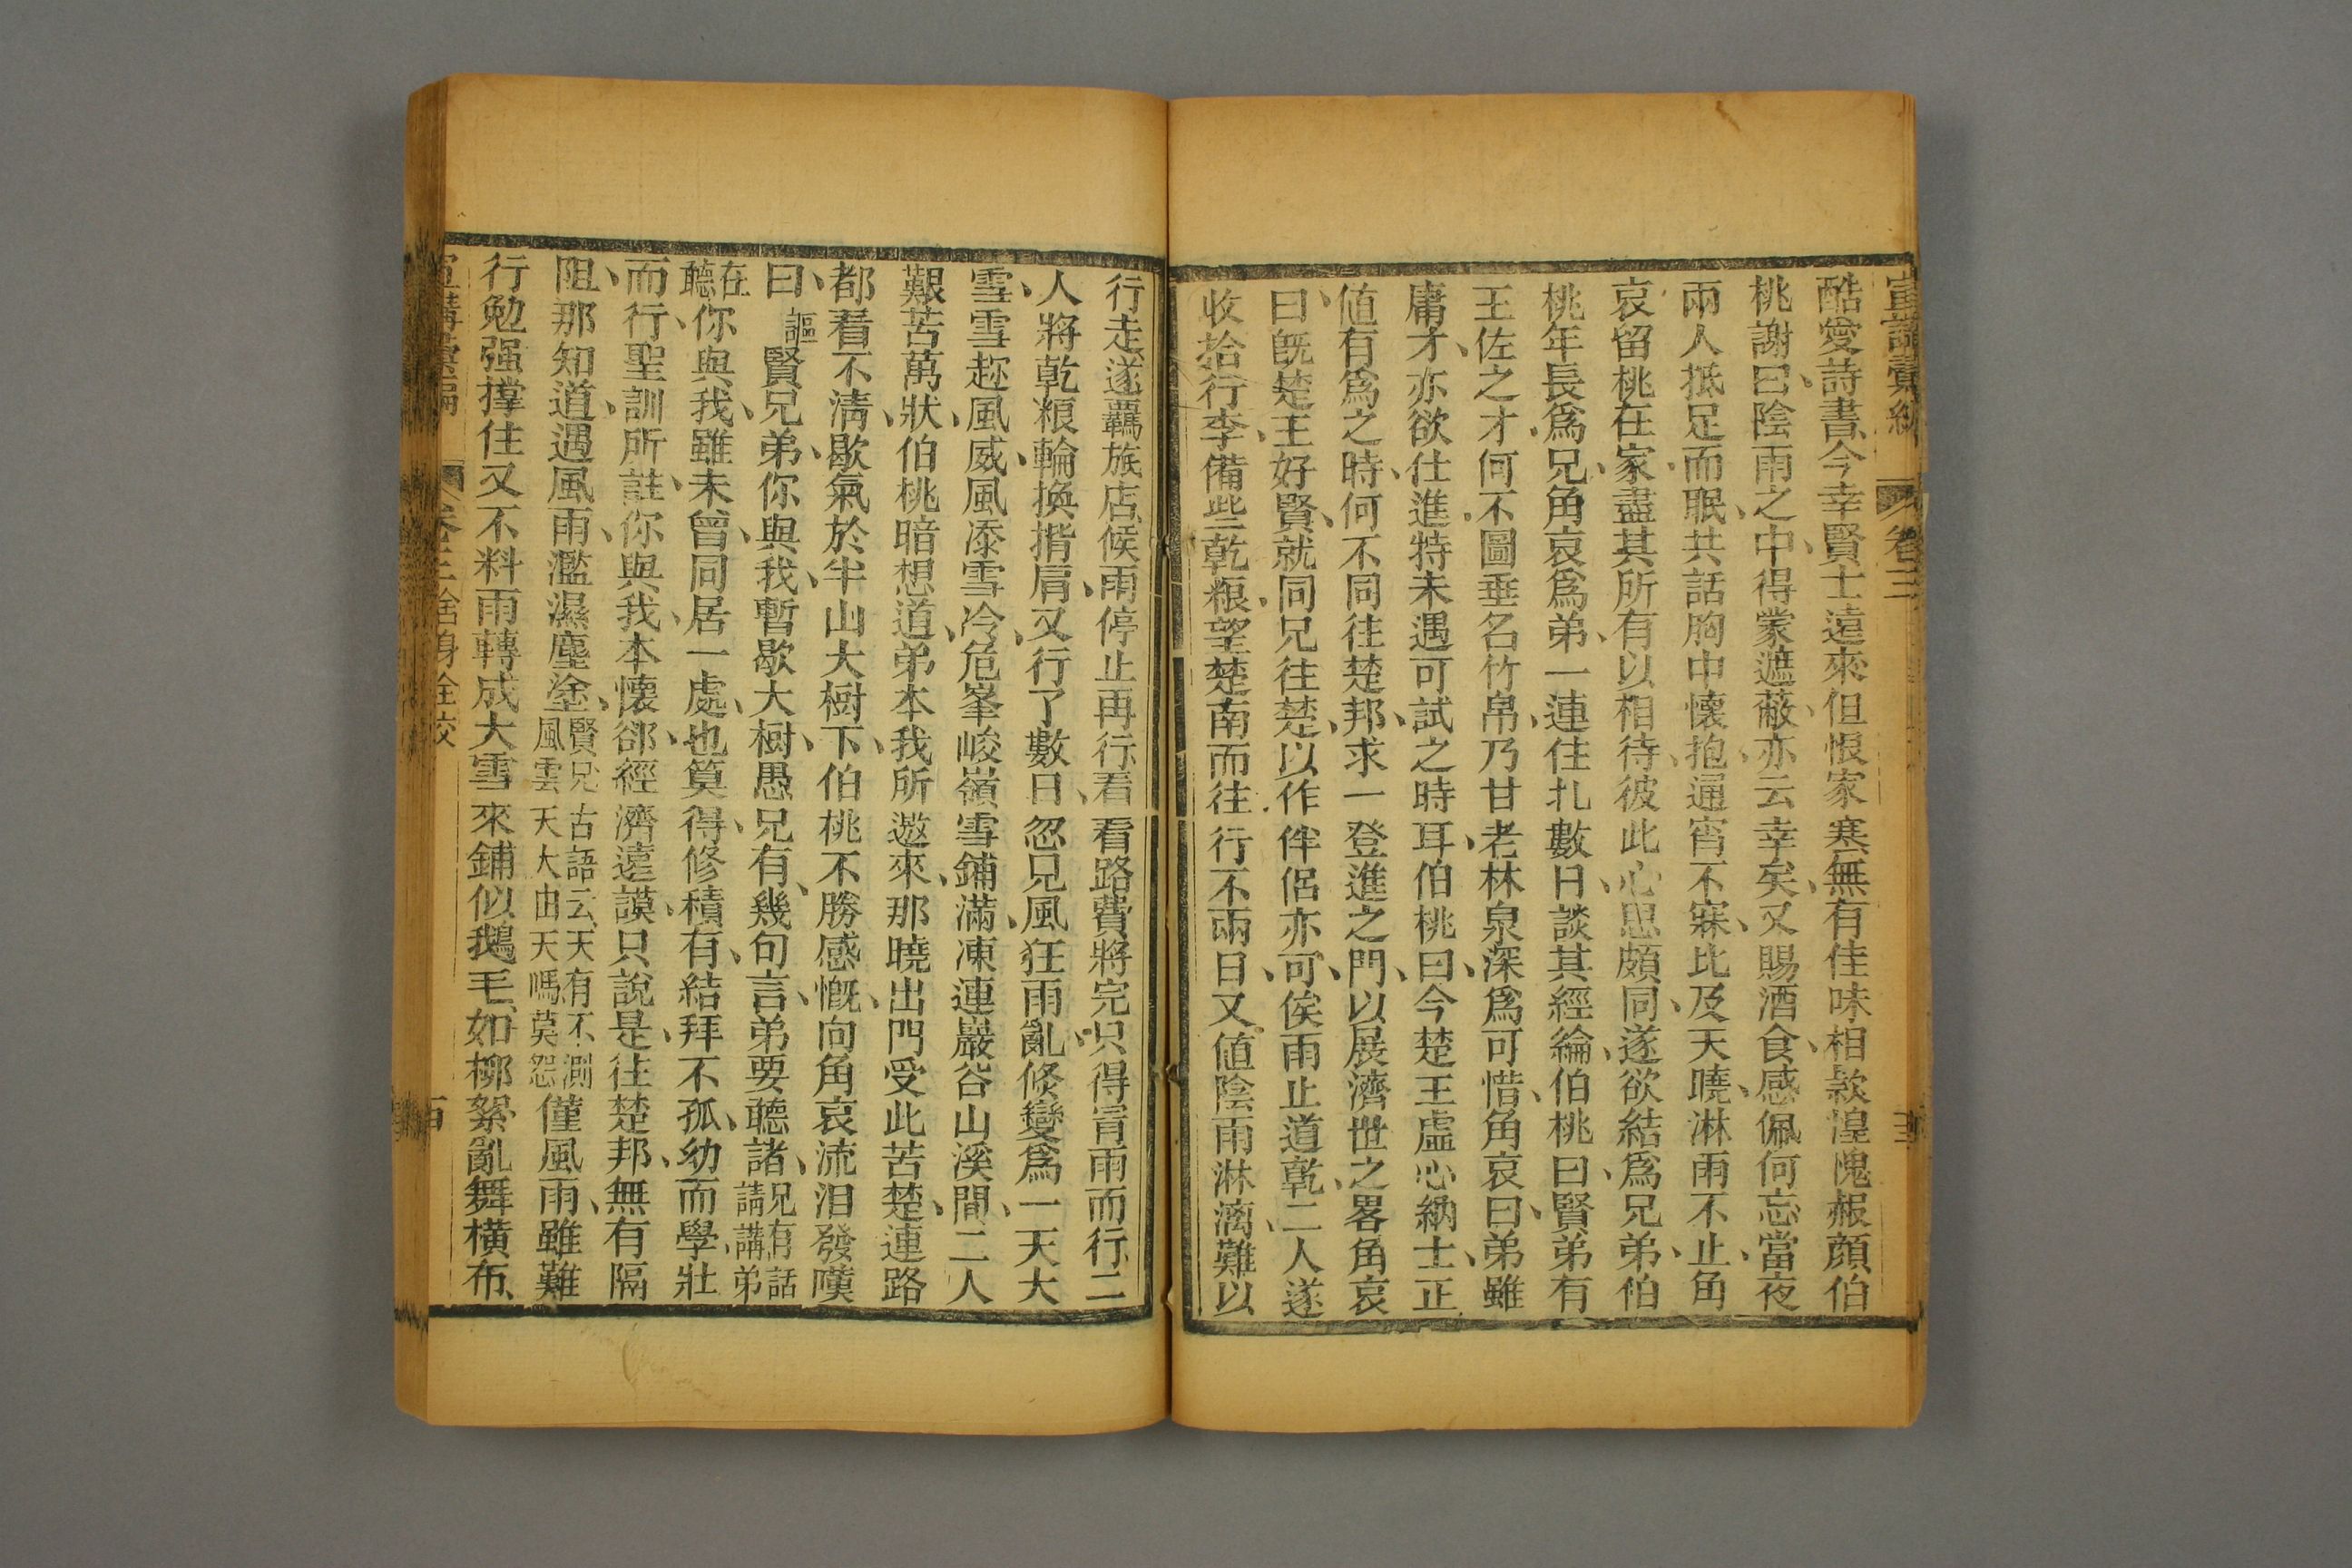 宣講彙編 卷三
酷愛詩書、今幸賢士遠來、但恨家寒、無有佳味相欵、惶愧赧顔、伯
桃謝曰、陰雨之中、得蒙遮蔽、亦云幸矣、又賜酒食、感佩何忘、當夜
兩人抵足而眠、共話胸中懷抱、通宵不寐、比及天曉、淋雨不止、角
哀留桃在家、盡其所有以相待、彼此心思頗同、遂欲結爲兄弟、伯
桃年長爲兄、角哀爲弟、一連住扎數日、談其經綸、伯桃曰、賢弟有
王佐之才、何不圖垂名竹帛、乃甘老林泉、深爲可惜、角哀曰、弟雖
庸才、亦欲仕進、特未遇可試之時耳、伯桃曰、今楚王虛心納士、正
値有爲之時、何不同往楚邦、求一登進之門、以展濟世之畧、角哀
曰、旣楚王好賢、就同兄往楚、以作伴侶亦可、俟雨止道乾、二人遂
收拾行李、備些乾粮、望楚南而往、行不兩日、又値陰雨淋漓、難以
行走、遂覊旅店、候雨停止再行、看看路費將完、只得冒雨而行、二
人將乾粮輪換揹肩、又行了數日、忽見風狂雨亂、倐變爲一天大
雪、雪趂風威、風添雪冷、危峯峻嶺雪鋪滿、凍連巖谷山溪間、二人
艱苦萬狀、伯桃暗想道、弟本我所邀來、那曉出門受此苦楚、連路
都看不淸、歇氣於半山大樹下、伯桃不勝感慨、向角哀流泪發嘆
曰、謳賢兄弟、你與我、暫歇大樹、愚兄有、幾句言、弟要聽諸、兄有話請講弟
在聽你與我、雖未曾、同居一處、也算得、修積有、結拜不孤、幼而學、壯
而行、聖訓所註、你與我、本懷卻、經濟遠謨、只說是、往楚邦、無有隔
阻、那知道、遇風雨、濫濕塵塗、賢兄古語云、天有不測風雲天大由天嗎莫怨僅風雨、雖難
行勉强撑住、又不料雨轉成大雪來鋪、似鵝毛、如柳絮、亂舞橫布、
宣講彙編 卷三 舍身全交